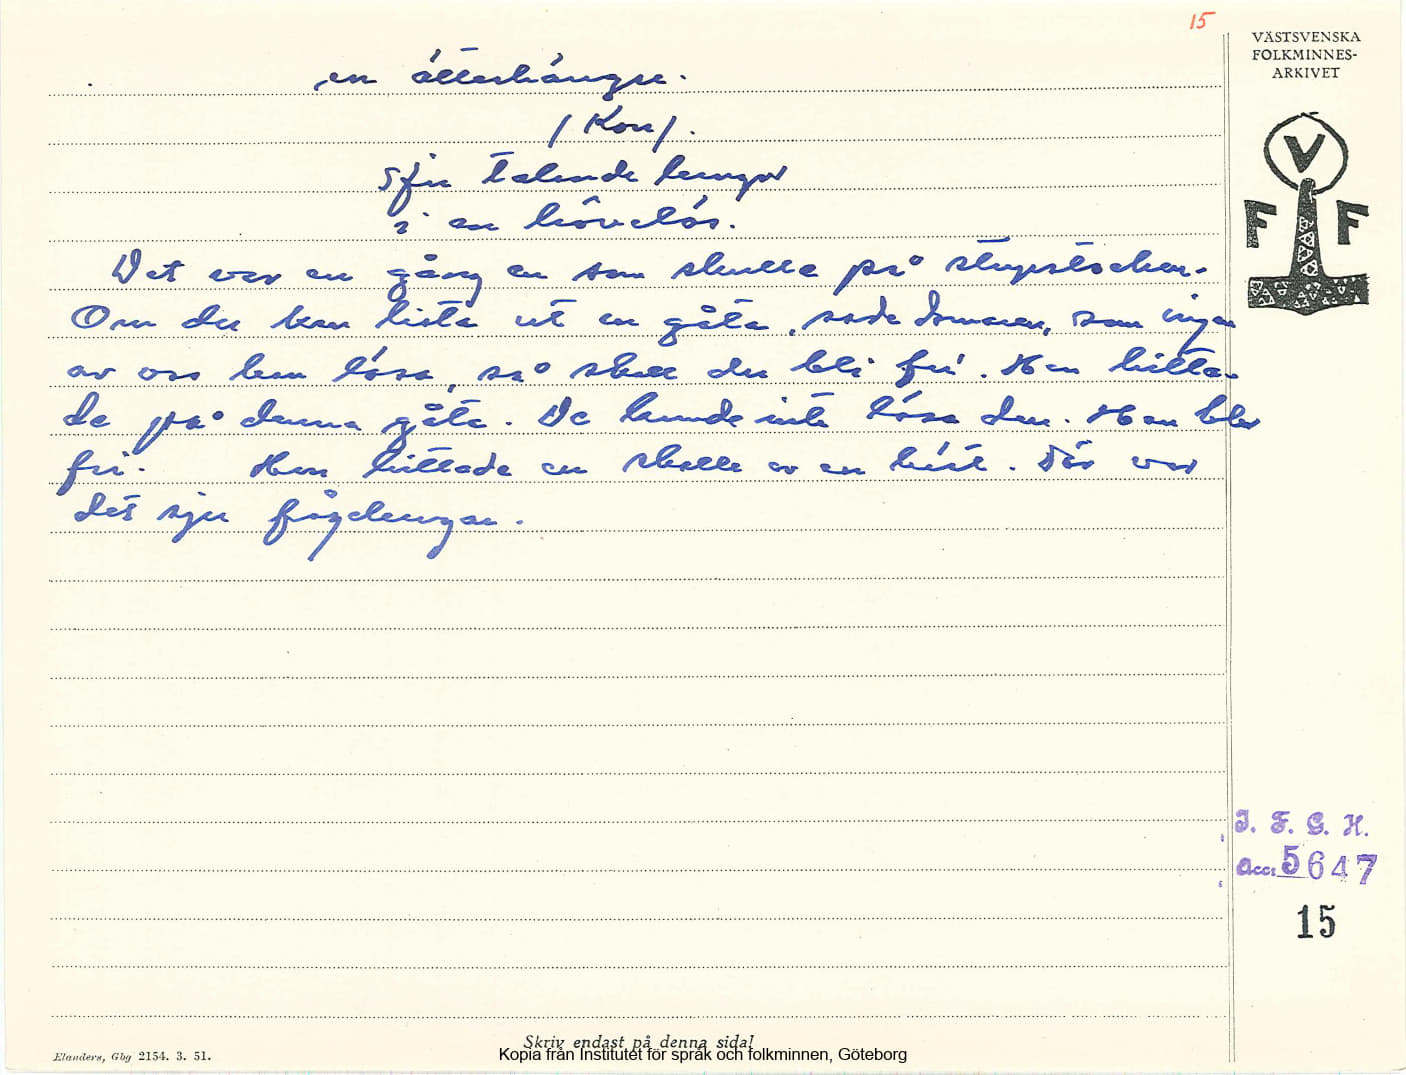 15
VÄSTSVENSKA
FOLKMINNES-
ARKIVET
V
F F
en åtterhängse.
/ Kon /.
Sju talende tungor
i en hövelös.
Det var en gång en som skulle på stupstocken.
Om du kan hitta ut en gåta, sade domaren, som ingen
av oss kan lösa, så skall du bli fri. Han hitta-
de på denna gåta. De kunde inte lösa den. Han blev
fri. Han hittade en skalle av en häst. Där var
det sju fågelungar.
I. F. G. H.
Acc: 5647
15
Skriv endast på denna sida!
Elanders, Gbg 2154. 3. 51.
Kopia från Institutet för språk och folkminnen, Göteborg